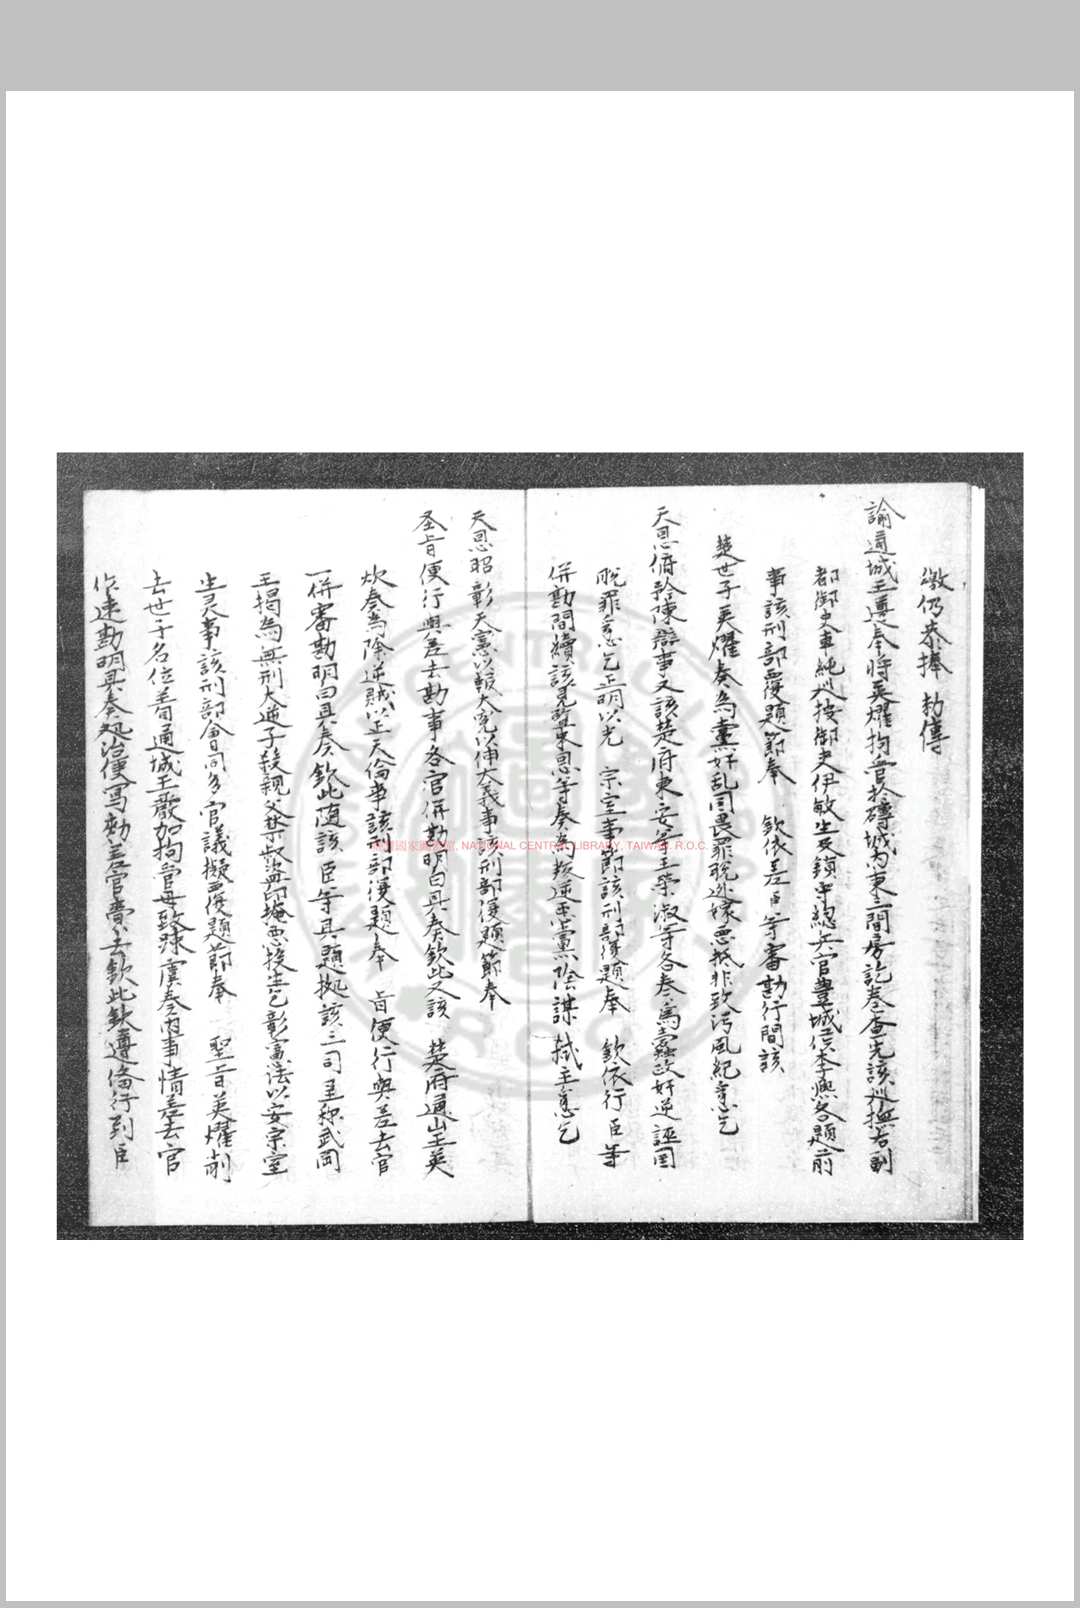 繳仍恭捧　勅傳
諭通城王遵奉將英燿拘當於磚城內東三間房訖卷查先該巡撫右副
都御史車純巡按御史伊敏生及鎮守總兵官豊城侯李熙各題前
事該刑部覆題節奉　欽依差臣等審勘行間該
楚世子英燿奏為黨奸乱囯畏罪脫逃嫁惡抵非致污風紀乞
天恩俯幹陳辭事又該楚府東安等王榮淑等各奏為蠹政奸逆誣囯
脫罪乞正明以光　宗室事節該刑部覆題奉　欽依行臣等
併勘間續該恩等奏為叛逆惡黨陰謀弒主乞
天恩昭彰天憲以大冤以伸大義事該刑部覆題節奉
圣旨便行與差去勘事各官併勘明白具奏欽此又該　楚府通山王英
炊奏為除逆賊以正天倫事該刑部覆題奉　旨便行與差去官
一併審勘明白具奏欽此隨該臣等具題拠該三司呈称武岡
王揭為無刑大逆子殺親父禁叔盜印掩惡投告乞彰憲法以安宗室
生灵事該刑部會同多官議擬覆題節奉　聖旨英燿削
去世子名位着通城王嚴加拘當毋致踈虞奏內事情差去官
作速勘明具奏処治便寫勅差官賫去欽此欽遵俻行到臣
臺灣國家圖書館, NATIONAL CENTRAL LIBRARY, TAIWAN, R.O.C.